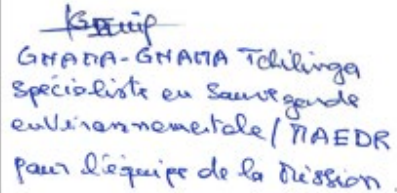 GNAMA-GNAMA Tchilinga
Spécialiste en Sauvegarde
environnementale/MAEDR
pour l'équipe de la Mission